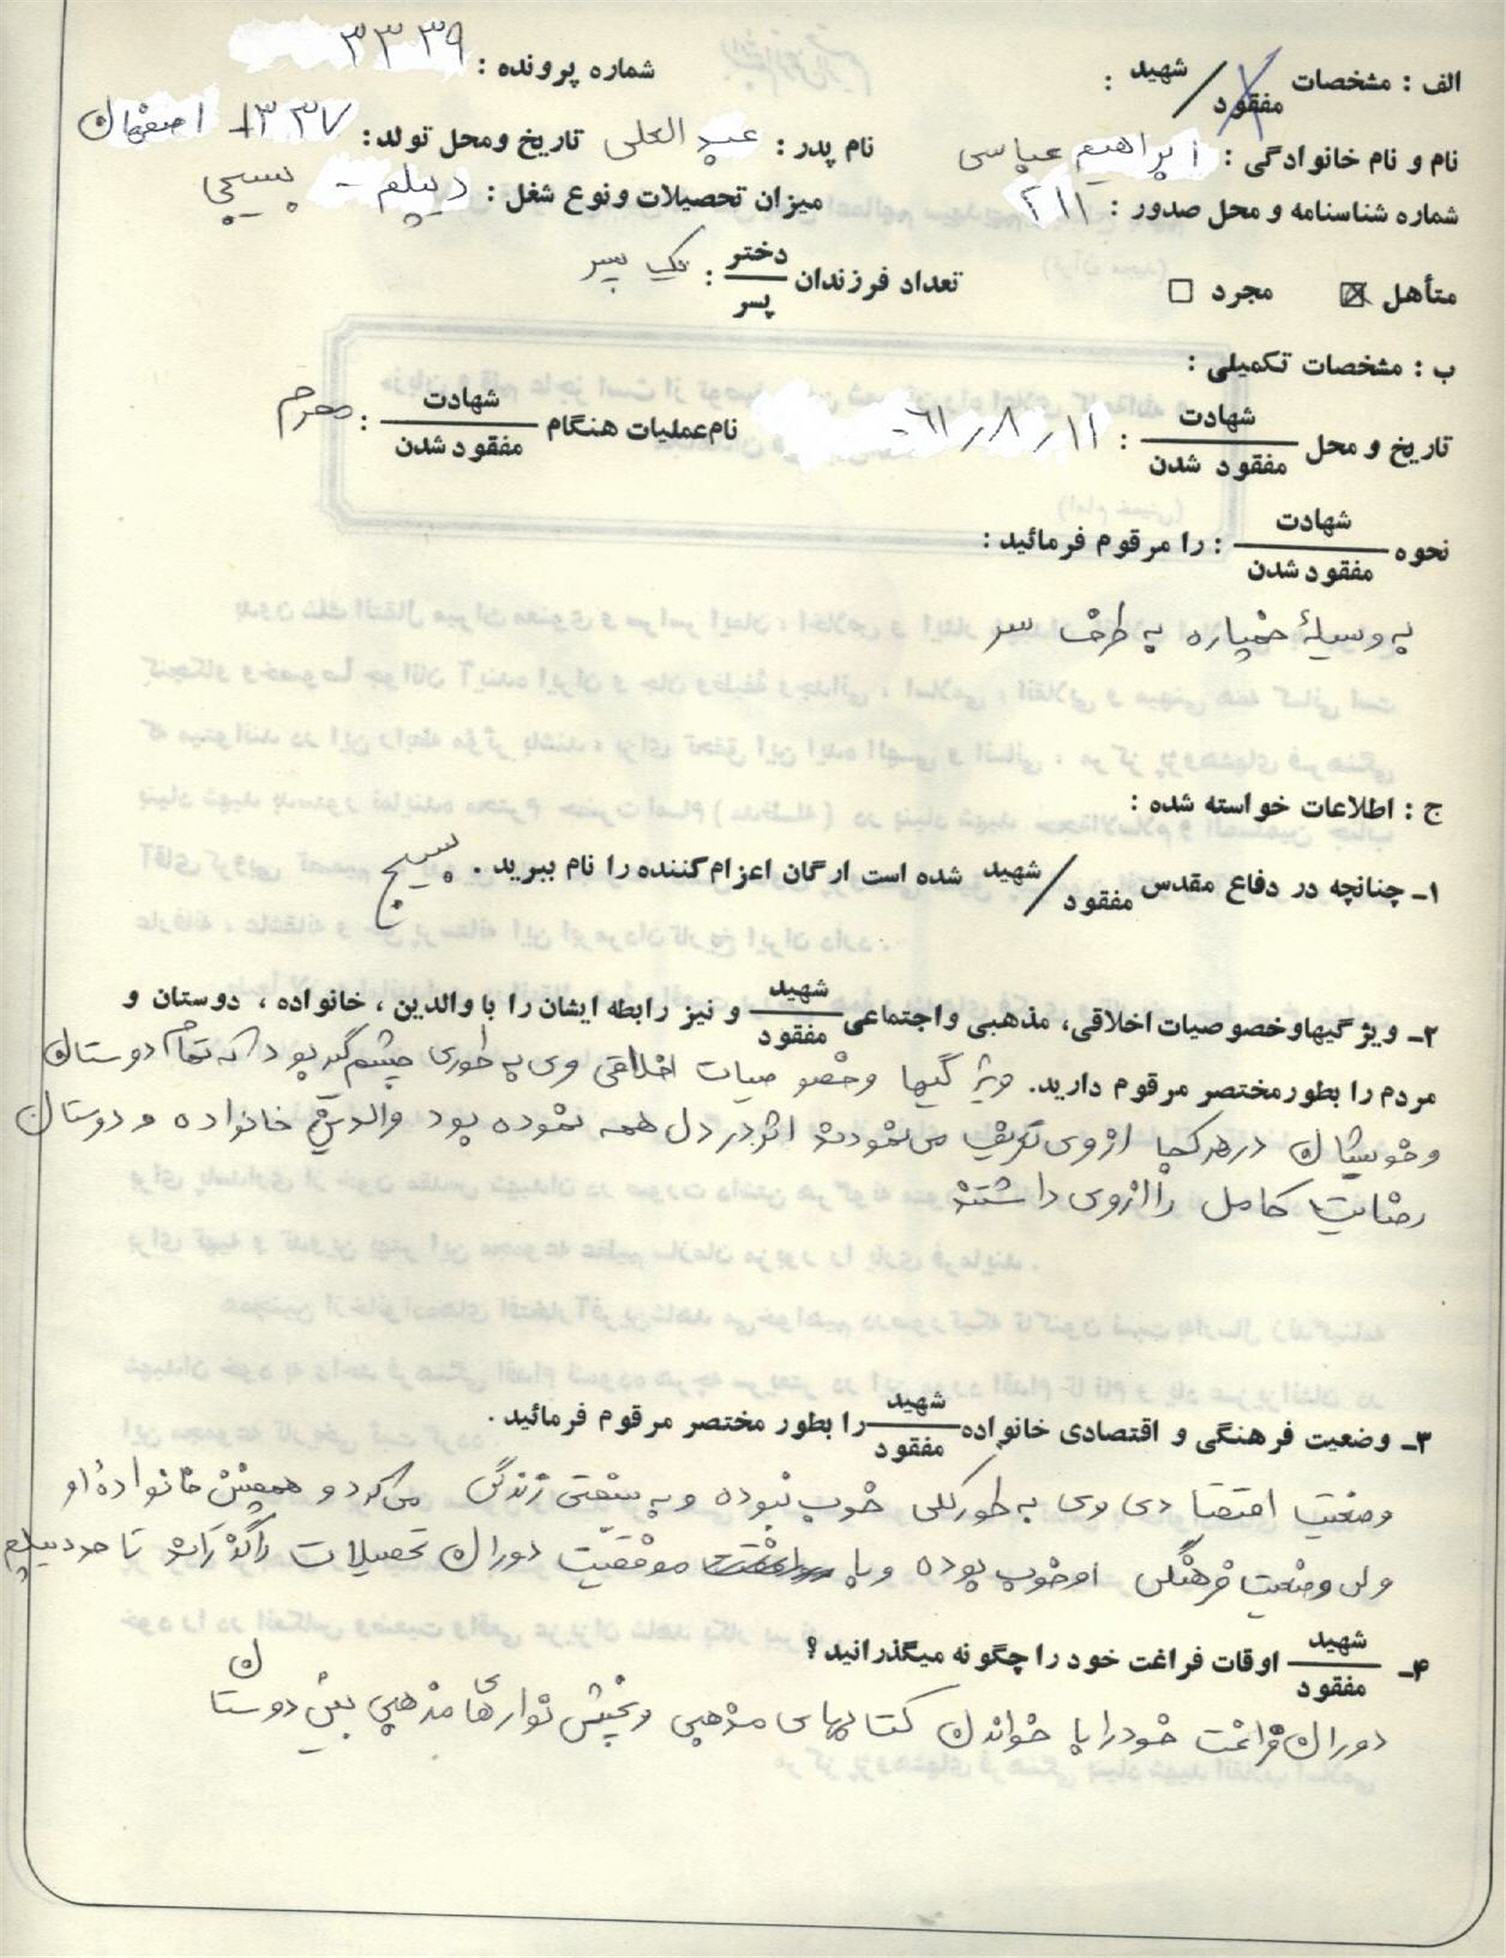 الف : مشخصات شهید / مفقود :
شماره پرونده : ۳۳۳۹
نام و نام خانوادگی : ابراهیم عباسی نام پدر : عبدالعلی تاریخ ومحل تولد : ۱۳۳۷ اصفهان
شماره شناسنامه و محل صدور : ۲۱۱ میزان تحصیلات ونوع شغل : دیپلم - بسیجی
متأهل ☒ مجرد ☐ تعداد فرزندان دختر / پسر : یک پسر
ب : مشخصات تکمیلی :
تاریخ و محل شهادت / مفقود شدن : ۶۱/۸/۱۱ نام عملیات هنگام شهادت / مفقود شدن : محرم
نحوه شهادت / مفقود شدن : را مرقوم فرمائید :
به وسیلهٔ خمپاره به طرف سر
ج : اطلاعات خواسته شده :
۱- چنانچه در دفاع مقدس شهید / مفقود شده است ارگان اعزام کننده را نام ببرید . بسیج
۲- ویژگیها و خصوصیات اخلاقی، مذهبی و اجتماعی شهید / مفقود و نیز رابطه ایشان را با والدین ، خانواده ، دوستان و
مردم را بطور مختصر مرقوم دارید. ویژگیها وخصوصیات اخلاقی وی به طوری چشم گیر بود که تمام دوستان
وخویشان در هر کجا از وی تعریف می نمودند اثر در دل همه نموده بود والدین خانواده و دوستان
رضایت کامل را از وی داشتند
۳- وضعیت فرهنگی و اقتصادی خانواده شهید / مفقود را بطور مختصر مرقوم فرمائید .
وضعیت اقتصادی وی به طور کلی خوب نبوده و به سختی زندگی می کرد و همچنین خانوادهٔ او
ولی وضعیت فرهنگی او خوب بوده و با موفقیت دوران تحصیلات را گذراند تا حد دیپلم
۴- شهید / مفقود اوقات فراغت خود را چگونه میگذرانید ؟
دوران فراغت خود را با خواندن کتابهای مذهبی و پخش نوارهای مذهبی بین دوستان